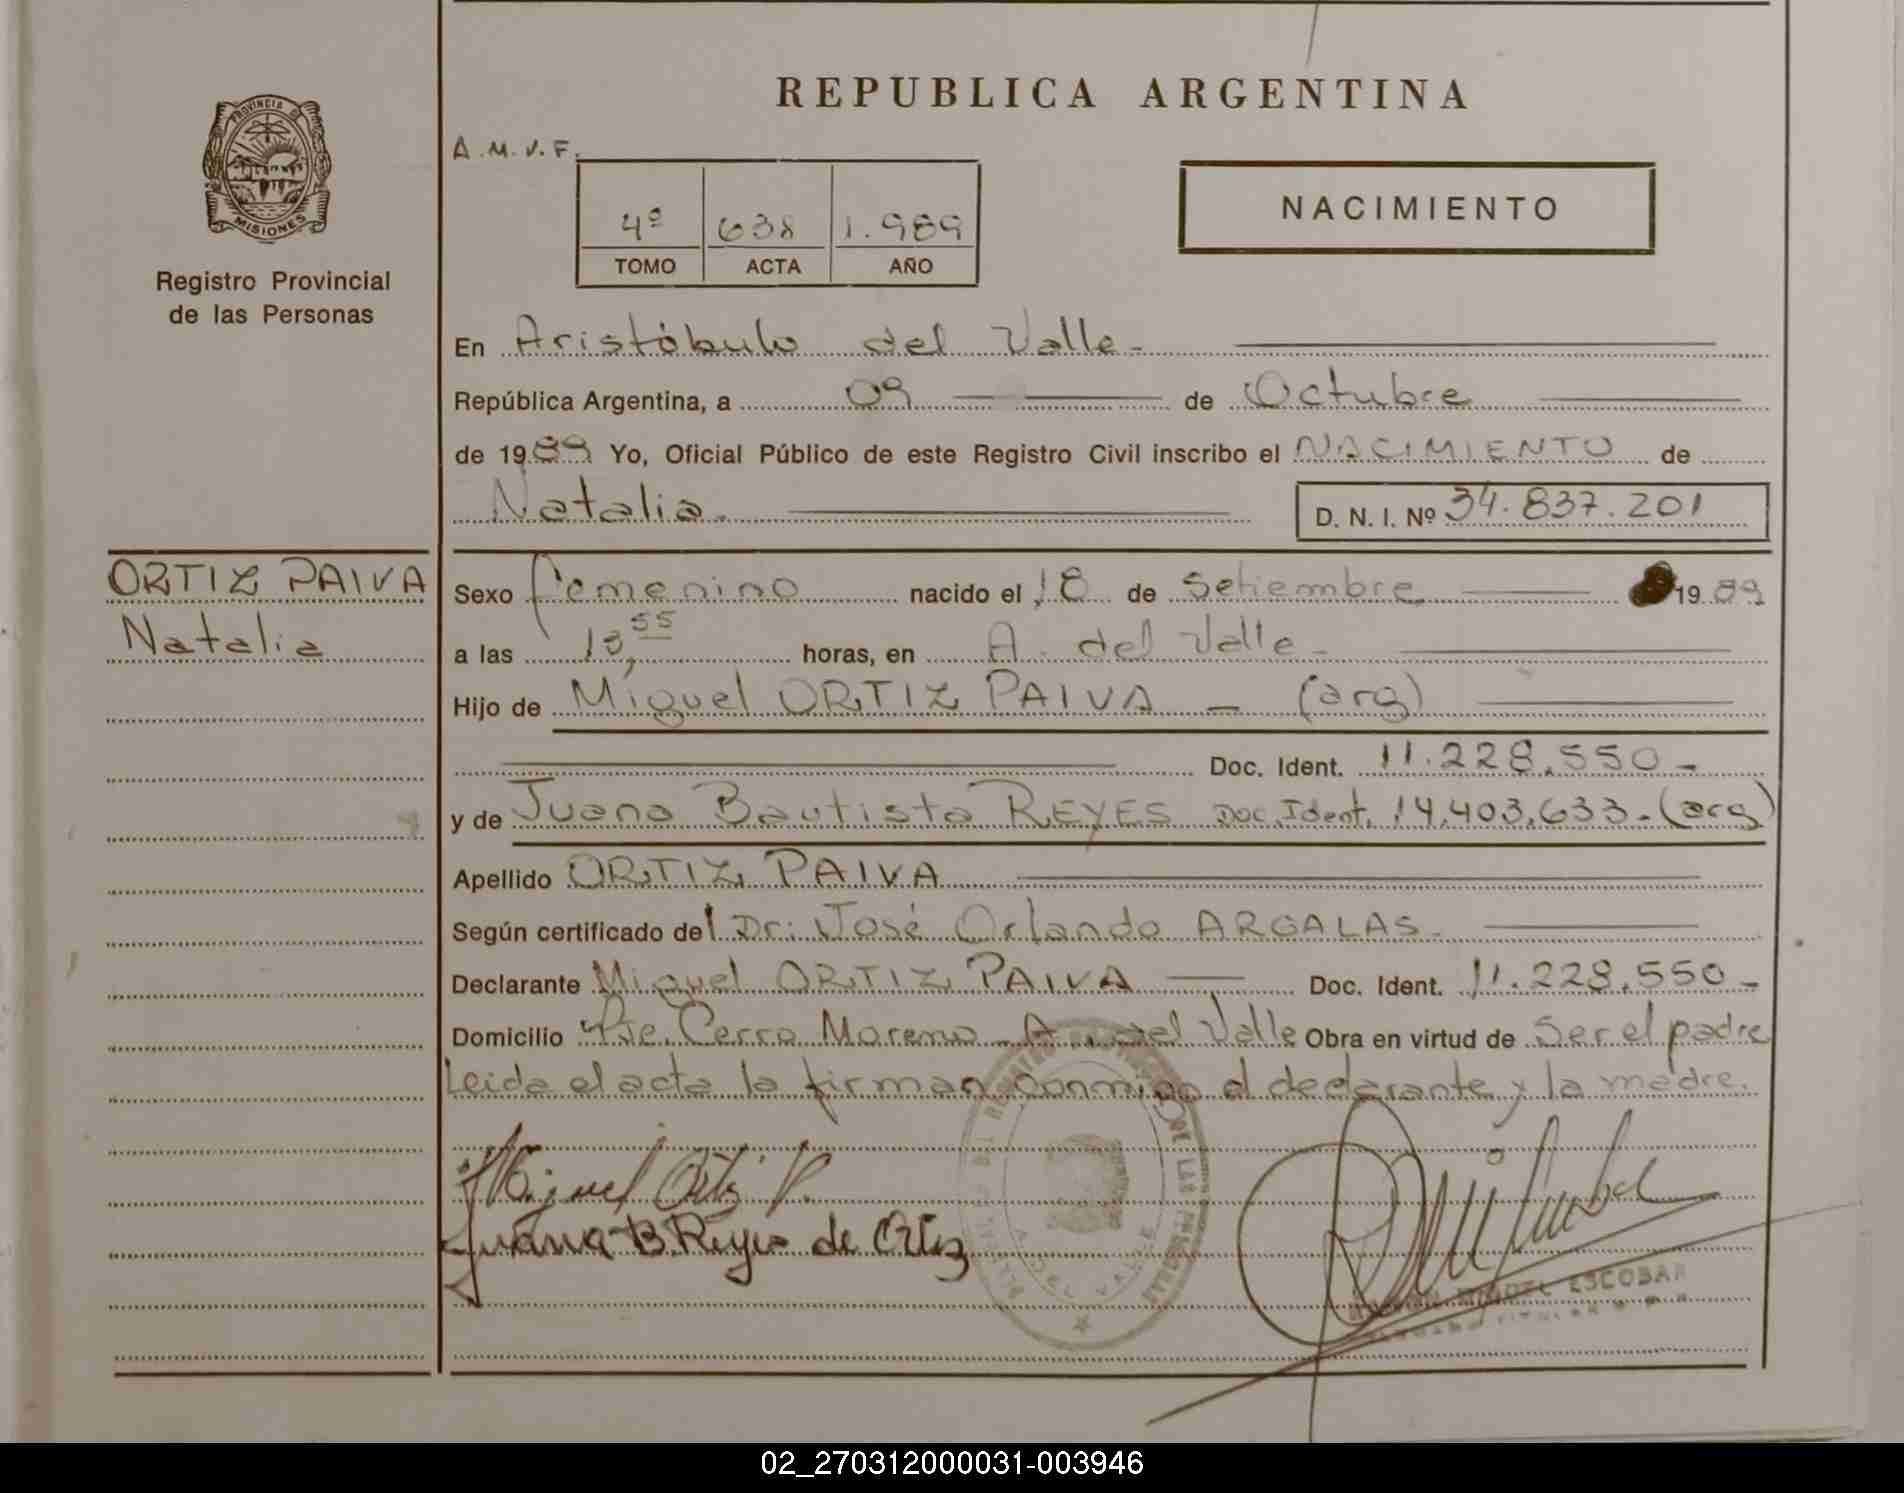 REPUBLICA ARGENTINA
PROVINCIA DE
MISIONES
Registro Provincial
de las Personas
A.M.V.F.
4º 638 1.989
TOMO ACTA AÑO
NACIMIENTO
En Aristóbulo del Valle.
República Argentina, a 09 de Octubre
de 1989 Yo, Oficial Público de este Registro Civil inscribo el NACIMIENTO de
Natalia. D. N. I. Nº 34.837.201
ORTIZ PAIVA
Natalia
Sexo femenino nacido el 18 de Setiembre 1989
a las 13,55 horas, en A. del Valle.
Hijo de Miguel ORTIZ PAIVA - (arg)
Doc. Ident. 11.228.550-
y de Juana Bautista REYES Doc. Ident. 14.403.633-(arg)
Apellido ORTIZ PAIVA
Según certificado del Dr: José Orlando ARGALAS.
Declarante Miguel ORTIZ PAIVA Doc. Ident. 11.228.550-
Domicilio Pje. Cerro Moreno - A. del Valle Obra en virtud de Ser el padre
Leida el acta la firman conmigo el declarante y la madre.
Miguel Ortiz P.
Juana B. Reyes de Ortiz
A. DEL VALLE
ESCOBAR
02_270312000031-003946